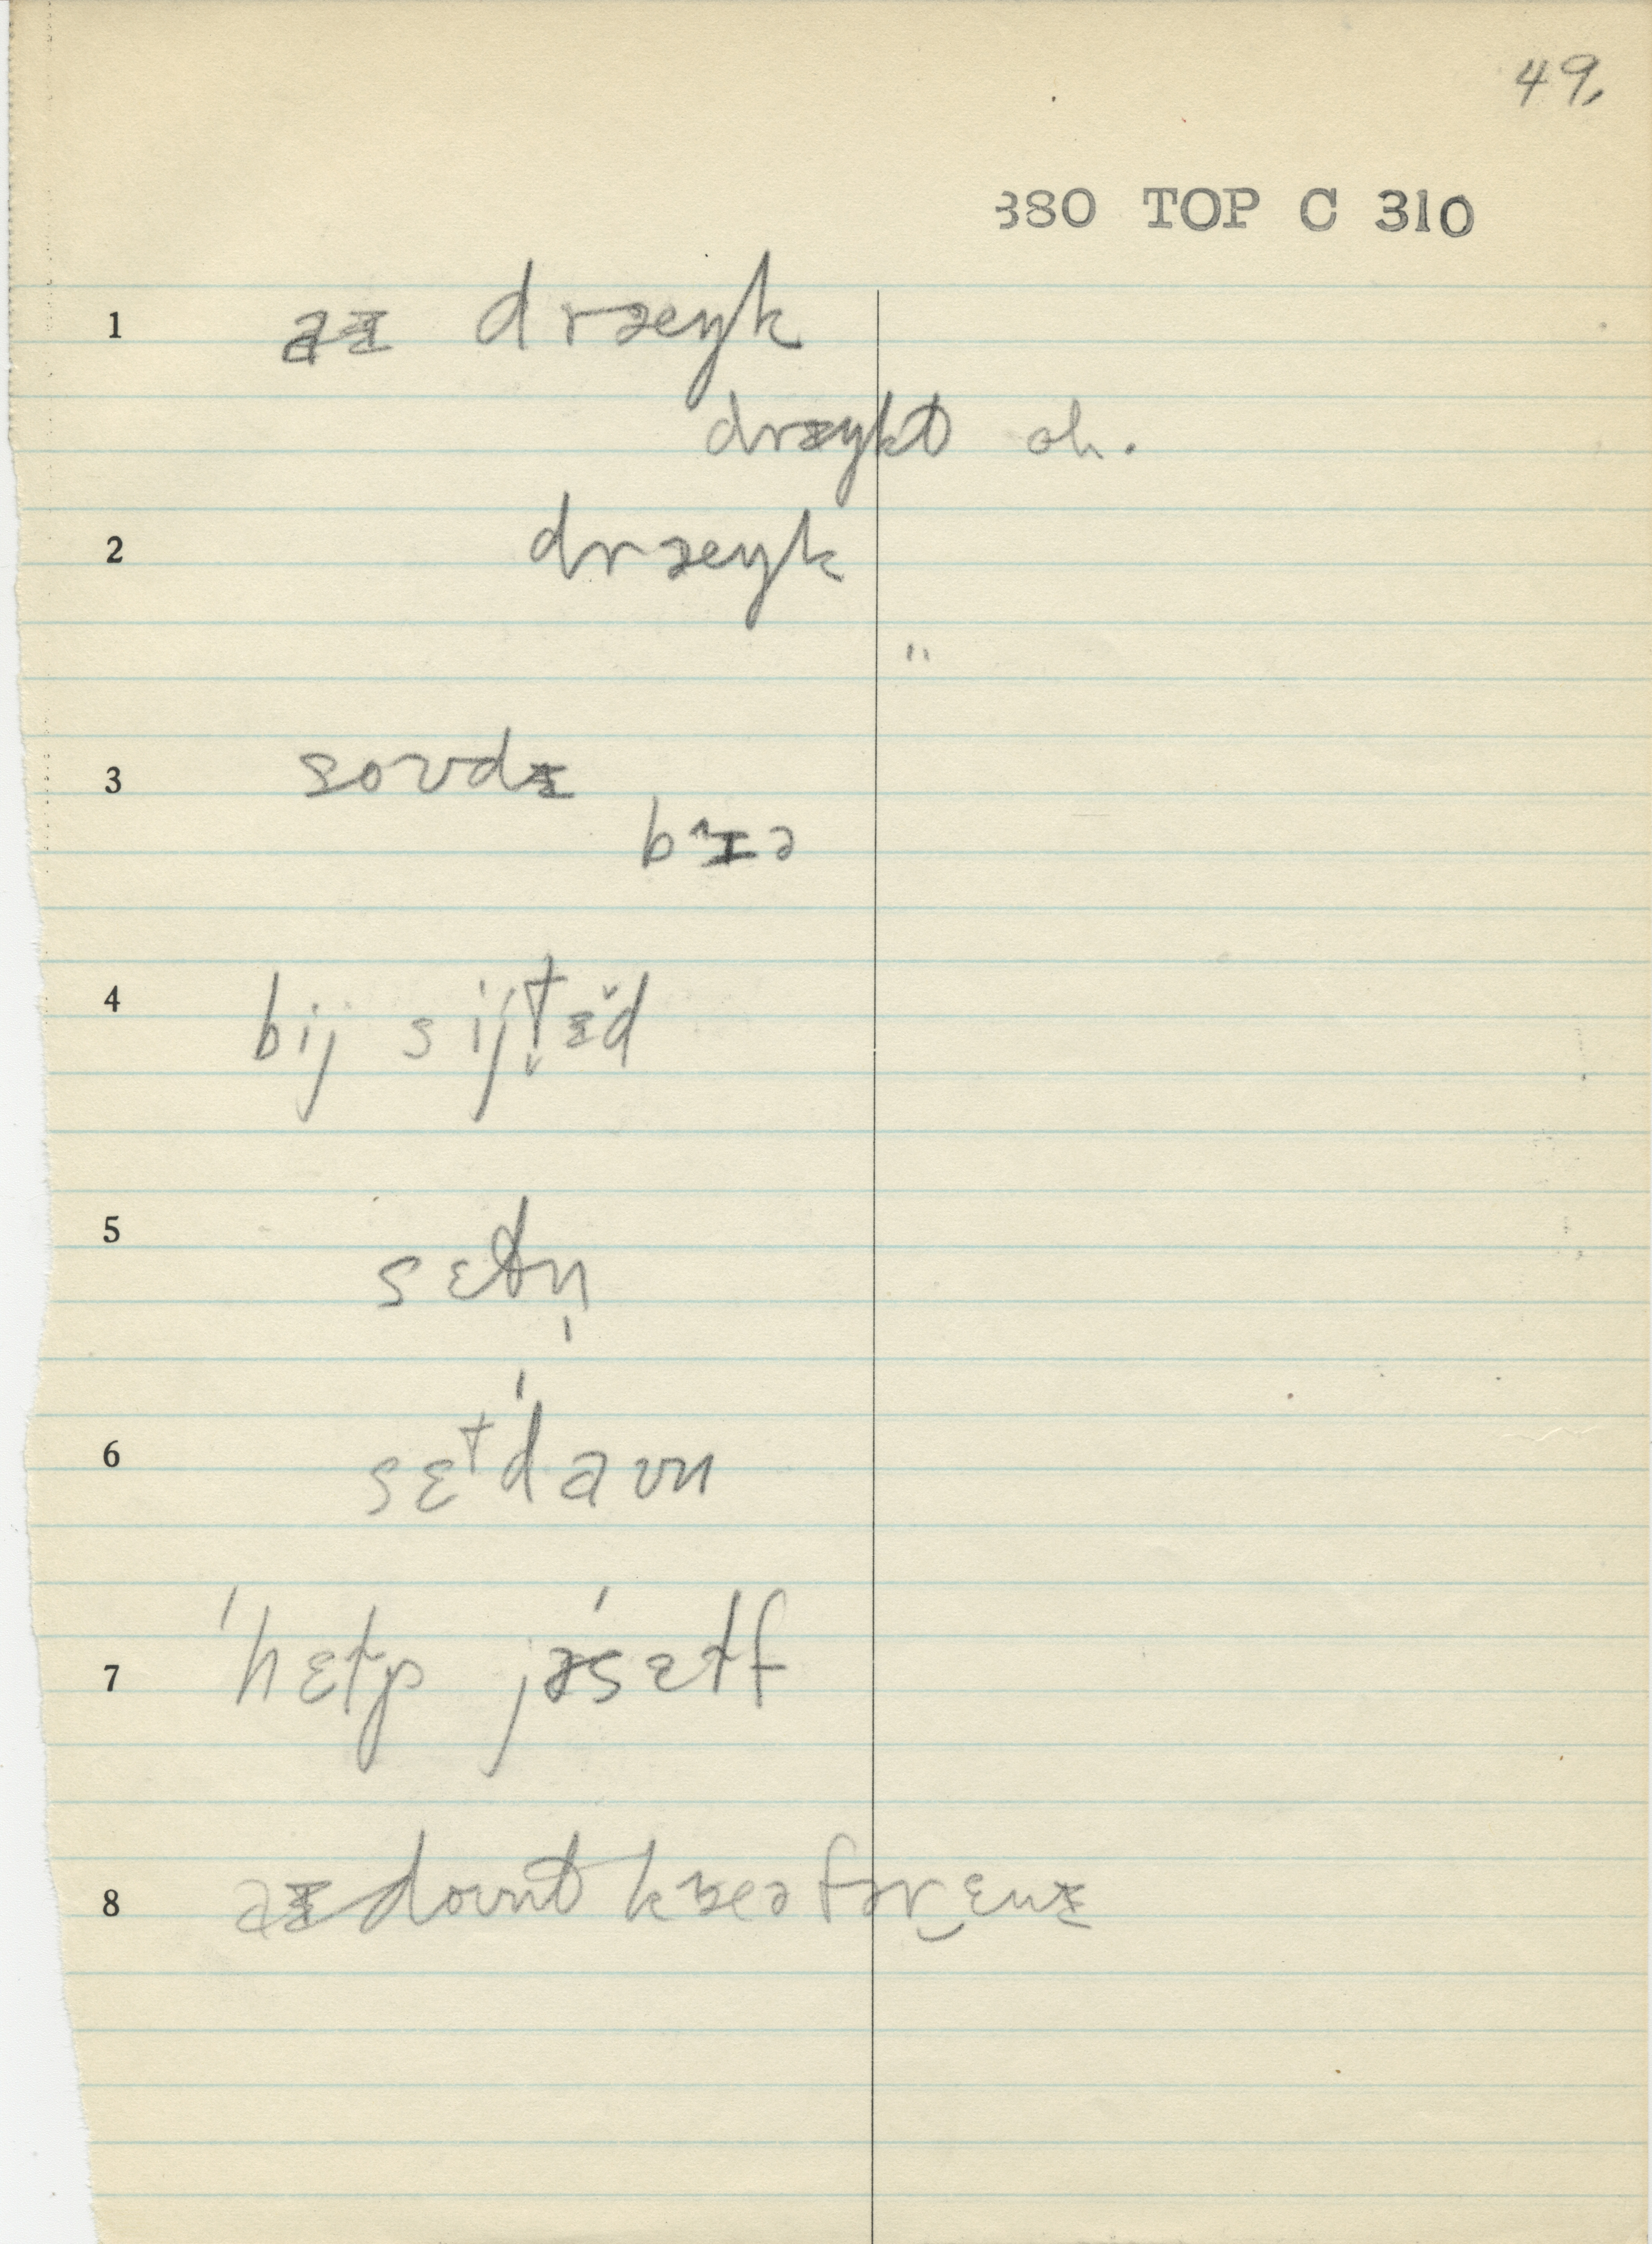 49.
380 TOP C 310
1 aɪ dræŋk
dræŋkt oh.
2 dræŋk
"
3 soʊdɪ
bɪə
4 bij sijt̬ɪ̆d
5 sɛtn̩
6 sɛtˈdaʊn
7 ˈhɛɫp jəˈsɛɫf
8 aɪ doʊnt kɛə fər‿ɛnɪ